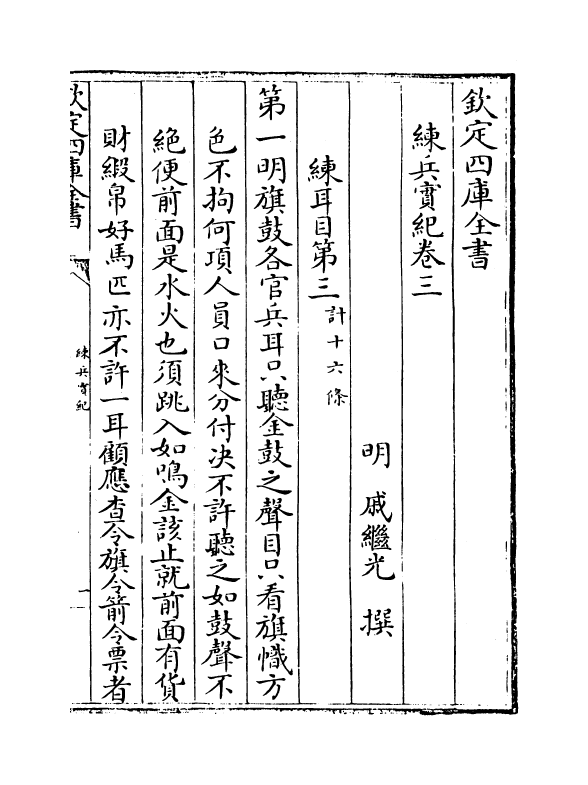 欽定四庫全書
練兵實紀卷三
明 戚繼光 撰
練耳目第三 計十六條
第一明旗鼓各官兵耳只聽金鼓之聲目只看旗幟方
色不拘何項人員口來分付决不許聽之如鼓聲不
絕便前面是水火也須跳入如鳴金該止就前面有貨
財緞帛好馬匹亦不許一耳顧應查令旗令箭令票者
欽定四庫全書
練兵實紀
一